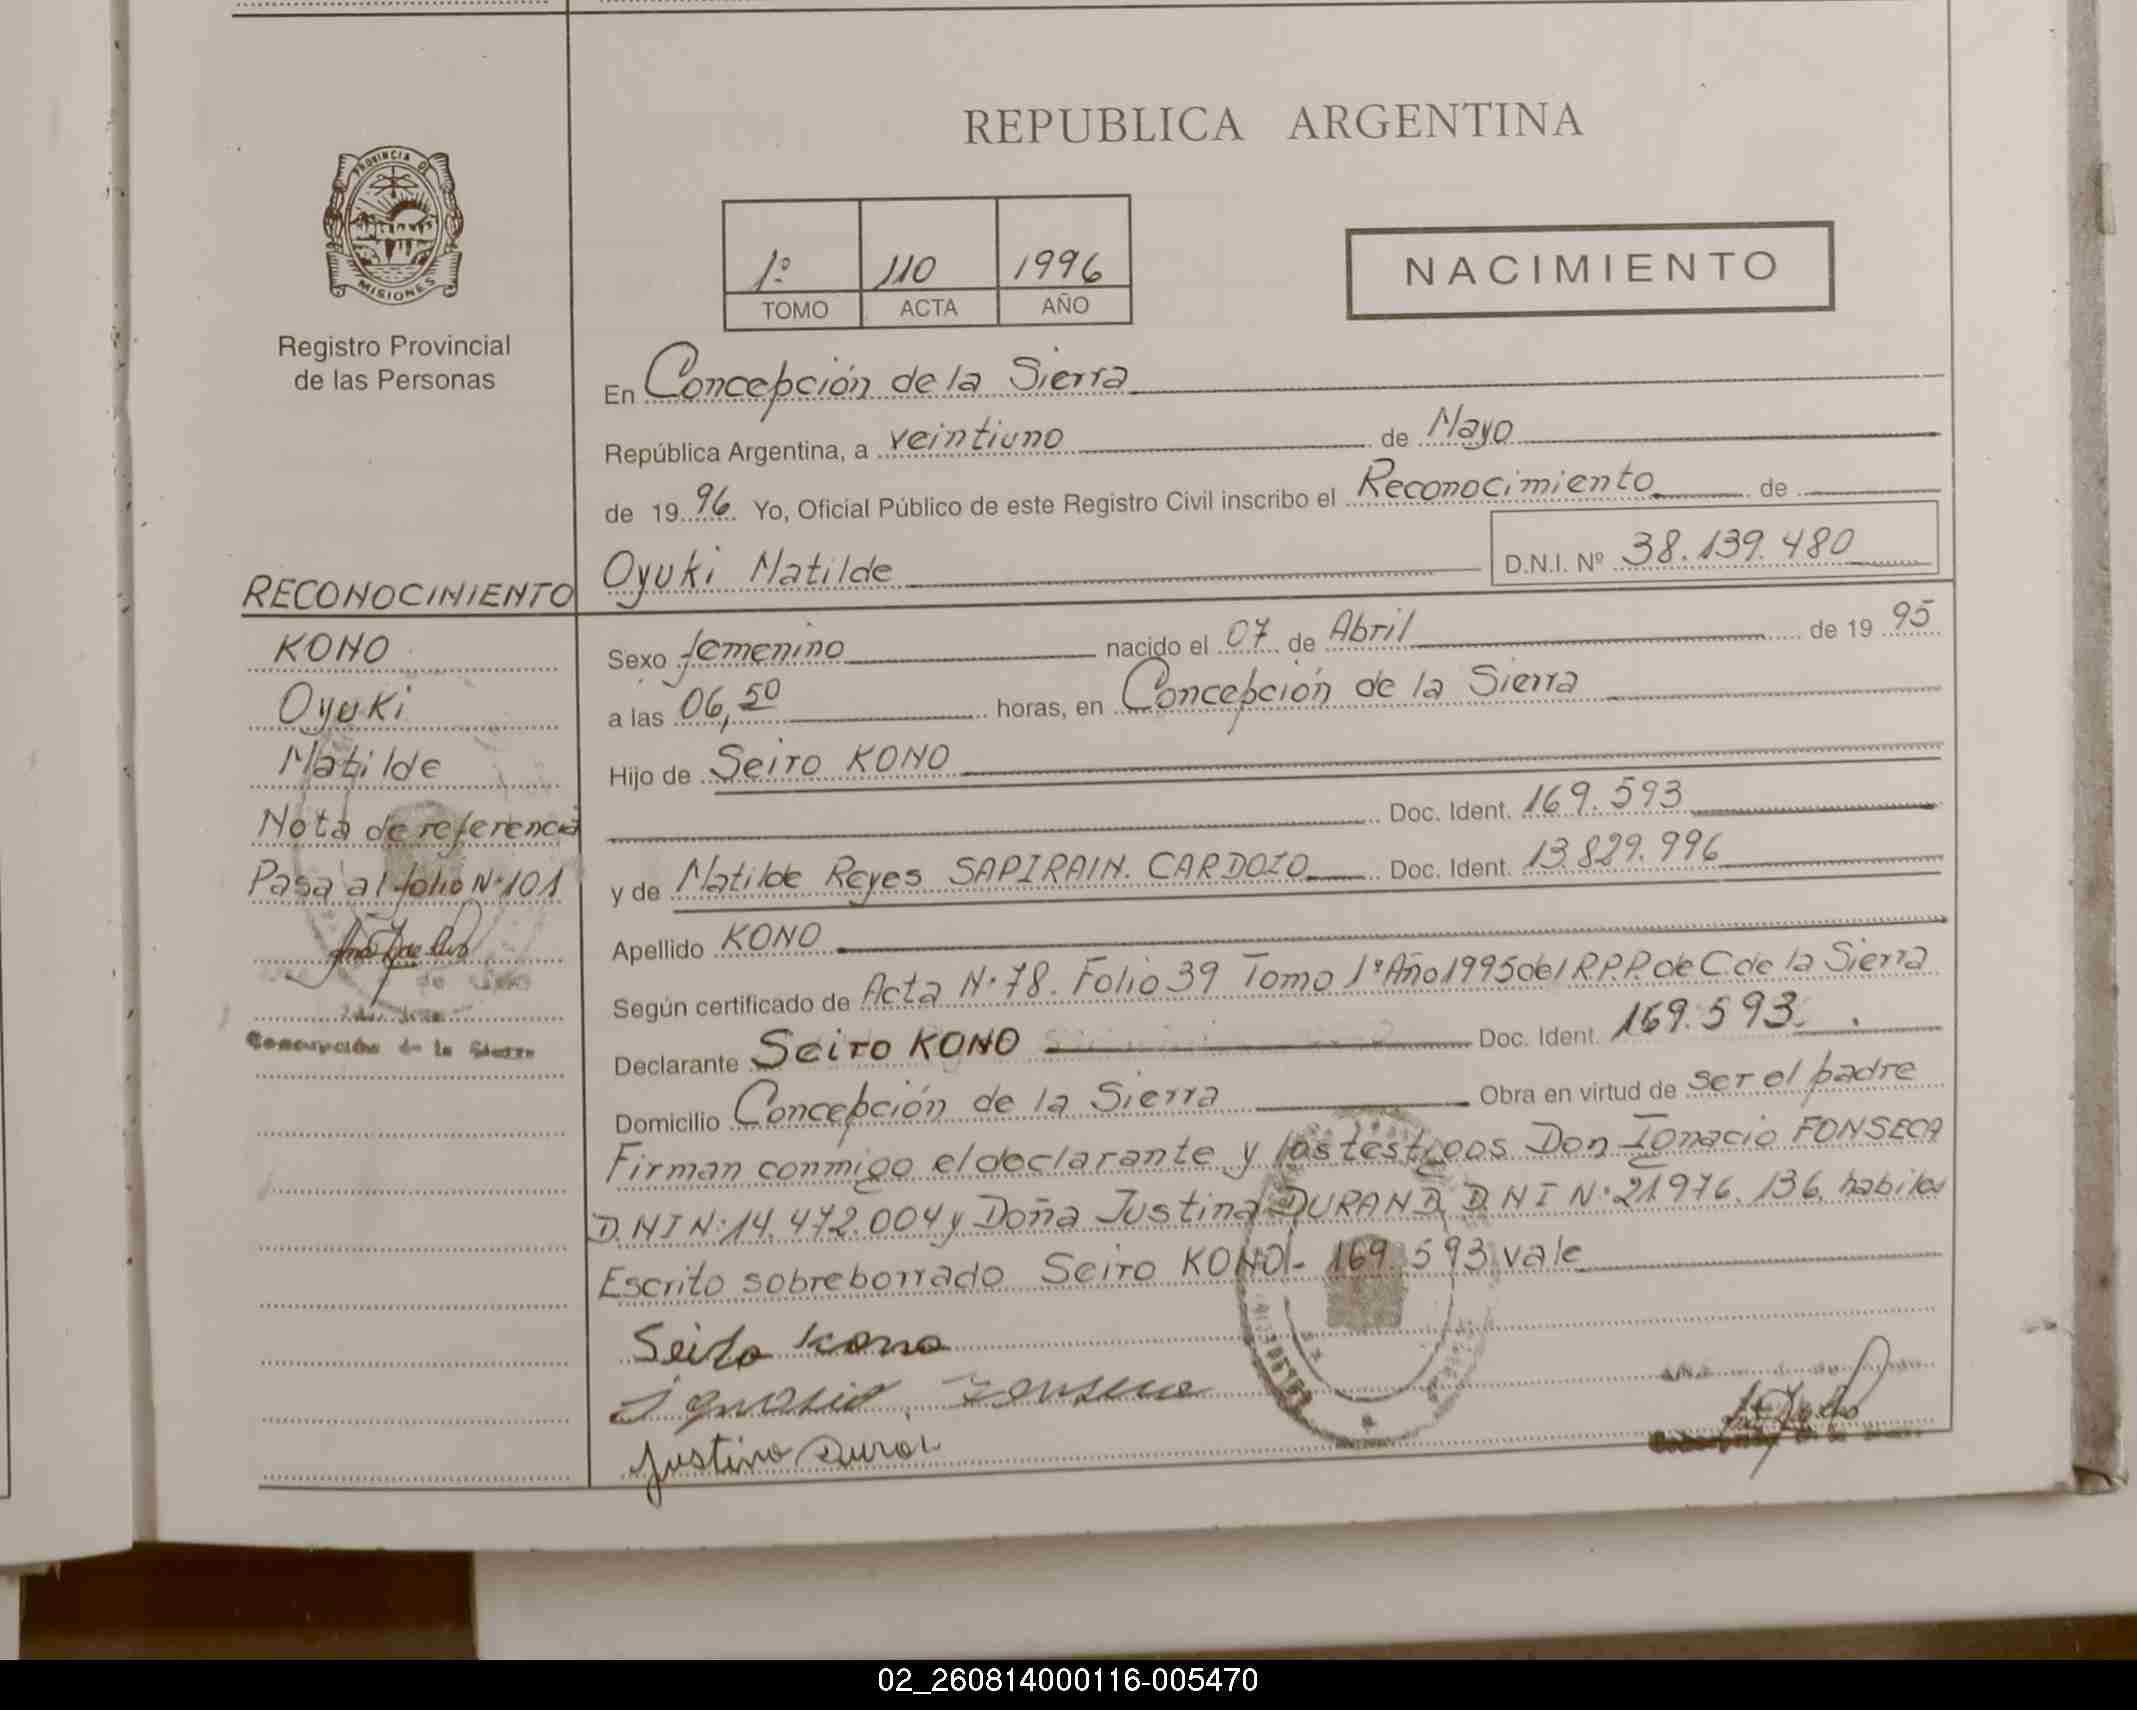 REPUBLICA ARGENTINA
PROVINCIA DE
MISIONES
Registro Provincial
de las Personas
1º 110 1996
TOMO ACTA AÑO
NACIMIENTO
En Concepción de la Sierra
República Argentina, a veintiuno de Mayo
de 19 96 Yo, Oficial Público de este Registro Civil inscribo el Reconocimiento de
Oyuki Matilde D.N.I. Nº 38.139.480
RECONOCIMIENTO
KONO
Oyuki
Matilde
Nota de referencia
Pasa al folio Nº 101
Concepción de la Sierra
Sexo femenino nacido el 07 de Abril de 19 95
a las 06,50 horas, en Concepción de la Sierra
Hijo de Seiro KONO
Doc. Ident. 169.593
y de Matilde Reyes SAPIRAIN. CARDOZO Doc. Ident. 13.829.996
Apellido KONO
Según certificado de Acta Nº 78. Folio 39 Tomo 1º Año 1995 del R.P.P. de C. de la Sierra
Declarante Seiro KONO Doc. Ident. 169.593.
Domicilio Concepción de la Sierra Obra en virtud de ser el padre
Firman conmigo el declarante y los testigos Don Ignacio FONSECA
D.N I Nº 14.472.004 y Doña Justina DURAND D.N I Nº 21.976.136 habiles
Escrito sobreborrado Seiro KONO.- 169.593 vale
Seiro Kono
Ignacio Fonseca
Justina Duran
02_260814000116-005470